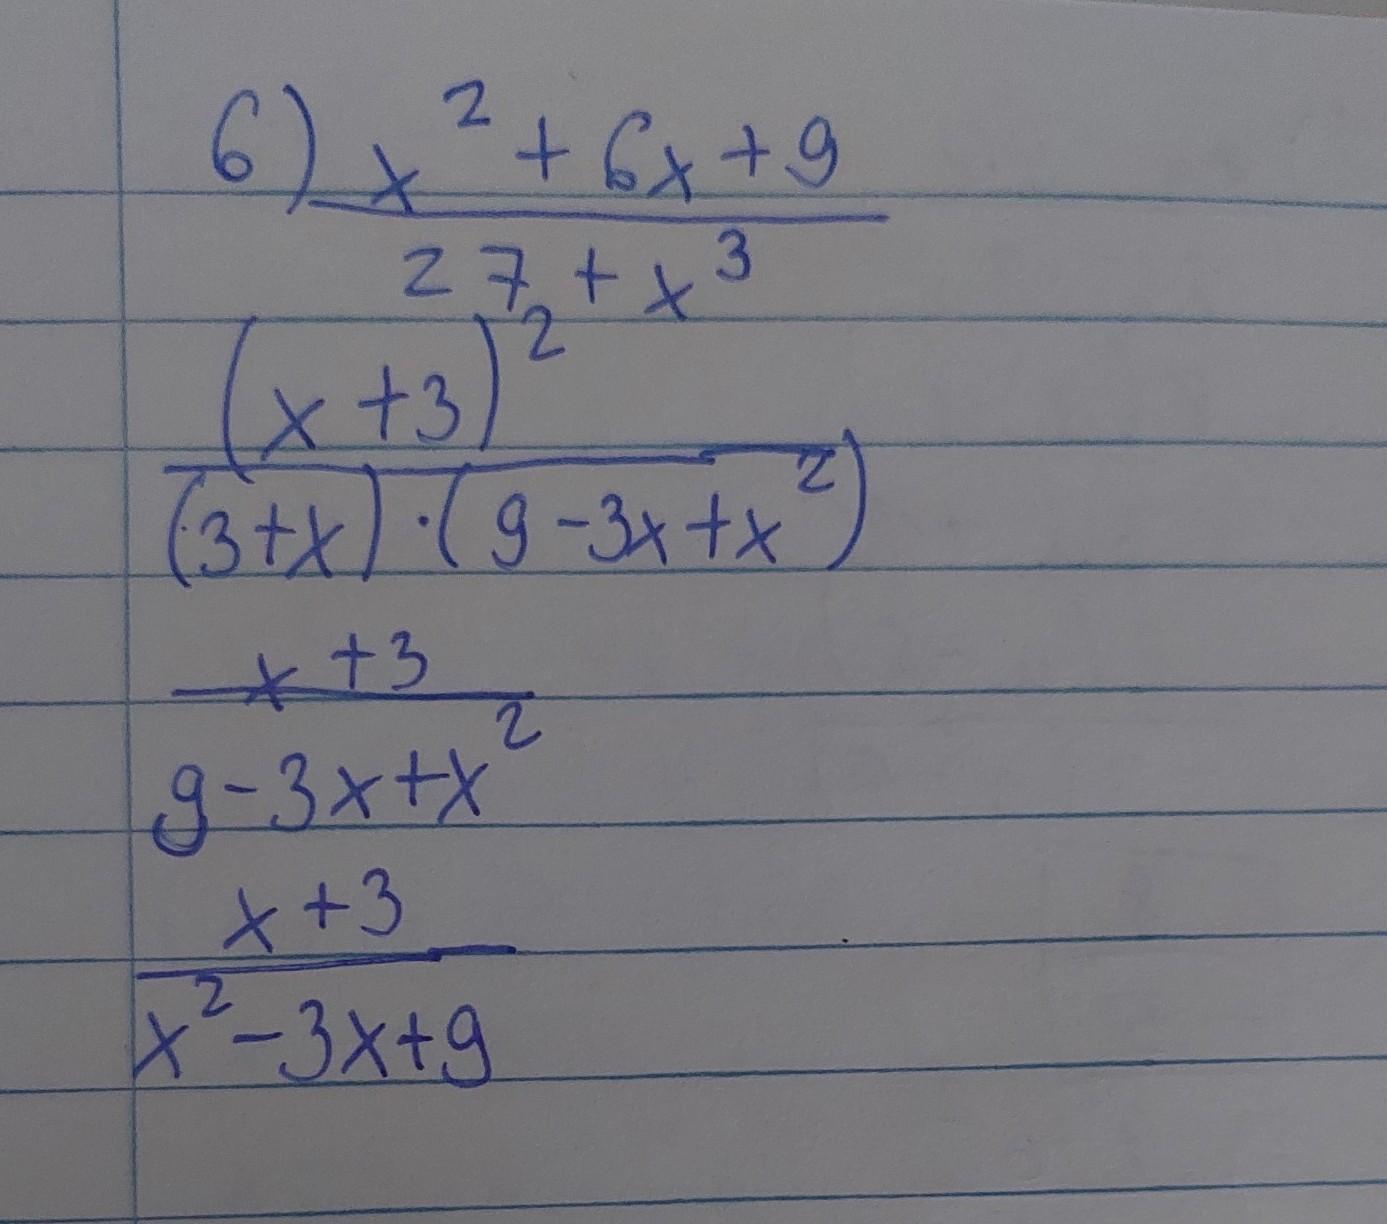 6) x² + 6x + 9
27 + x³
(x + 3)²
(3 + x) · (9 - 3x + x²)
x + 3
9 - 3x + x²
x + 3
x² - 3x + 9